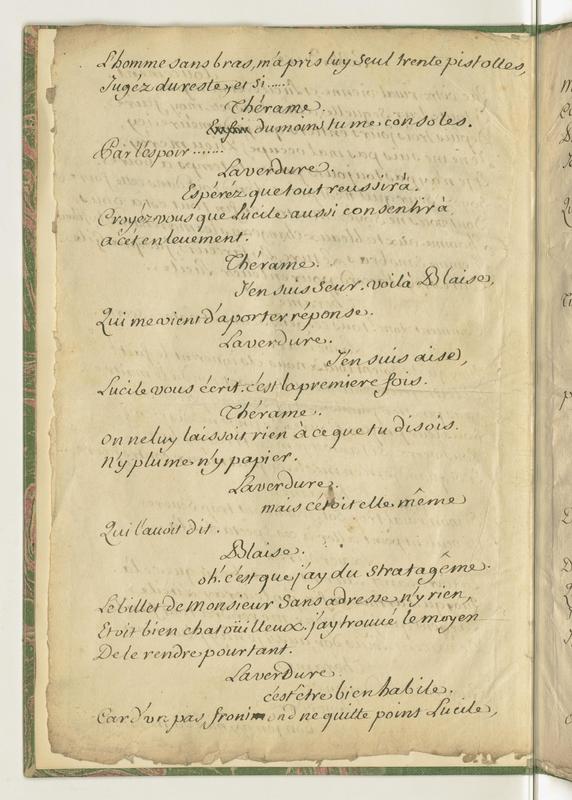 L'homme sans bras, m'a pris luy seul trente pistolles,
Jugéz du reste, et si......
Thérame.
du moins tu me consoles.
Par l'espoir........
Laverdure.
Espéréz que tout reussirà.
Croyéz vous que Lucile aussi consentirà
à cét enlevement.
Thérame.
J'en suis seur. voilà Blaise,
Qui me vient d'aporter réponse.
Laverdure.
J'en suis aise,
Lucile vous écrit. c'est la premiere fois.
Thérame.
on ne luy laissoit rien à ce que tu disois.
n'y plume n'y papier.
Laverdure.
mais c'étoit elle même
Qui l'avoit dit.
Blaise.
oh! c'est que j'ay du stratagême.
Le billet de monsieur sans adresse n'y rien,
Etoit bien chatoüilleux. j'ay trouvé le moyen
De le rendre pourtant.
Laverdure.
c'est être bien habile.
Car d'un pas ne quitte point Lucile,